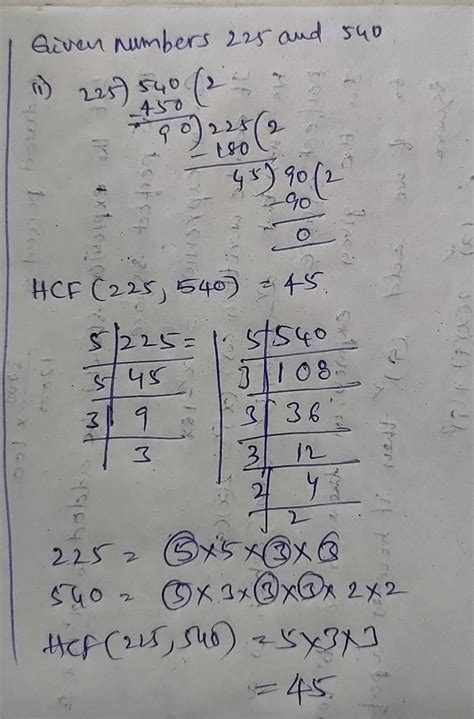 Given numbers 225 and 540
ii) 225) 540 (2
-450
90) 225 (2
-180
45) 90 (2
-90
0
HCF (225, 540) = 45
5 | 225 = 5 | 540
5 | 45 3 | 108
3 | 9 3 | 36
3 3 | 12
2 | 4
2
225 = 5 × 5 × 3 × 3
540 = 5 × 3 × 3 × 3 × 2 × 2
HCF (225, 540) = 5 × 3 × 3
= 45